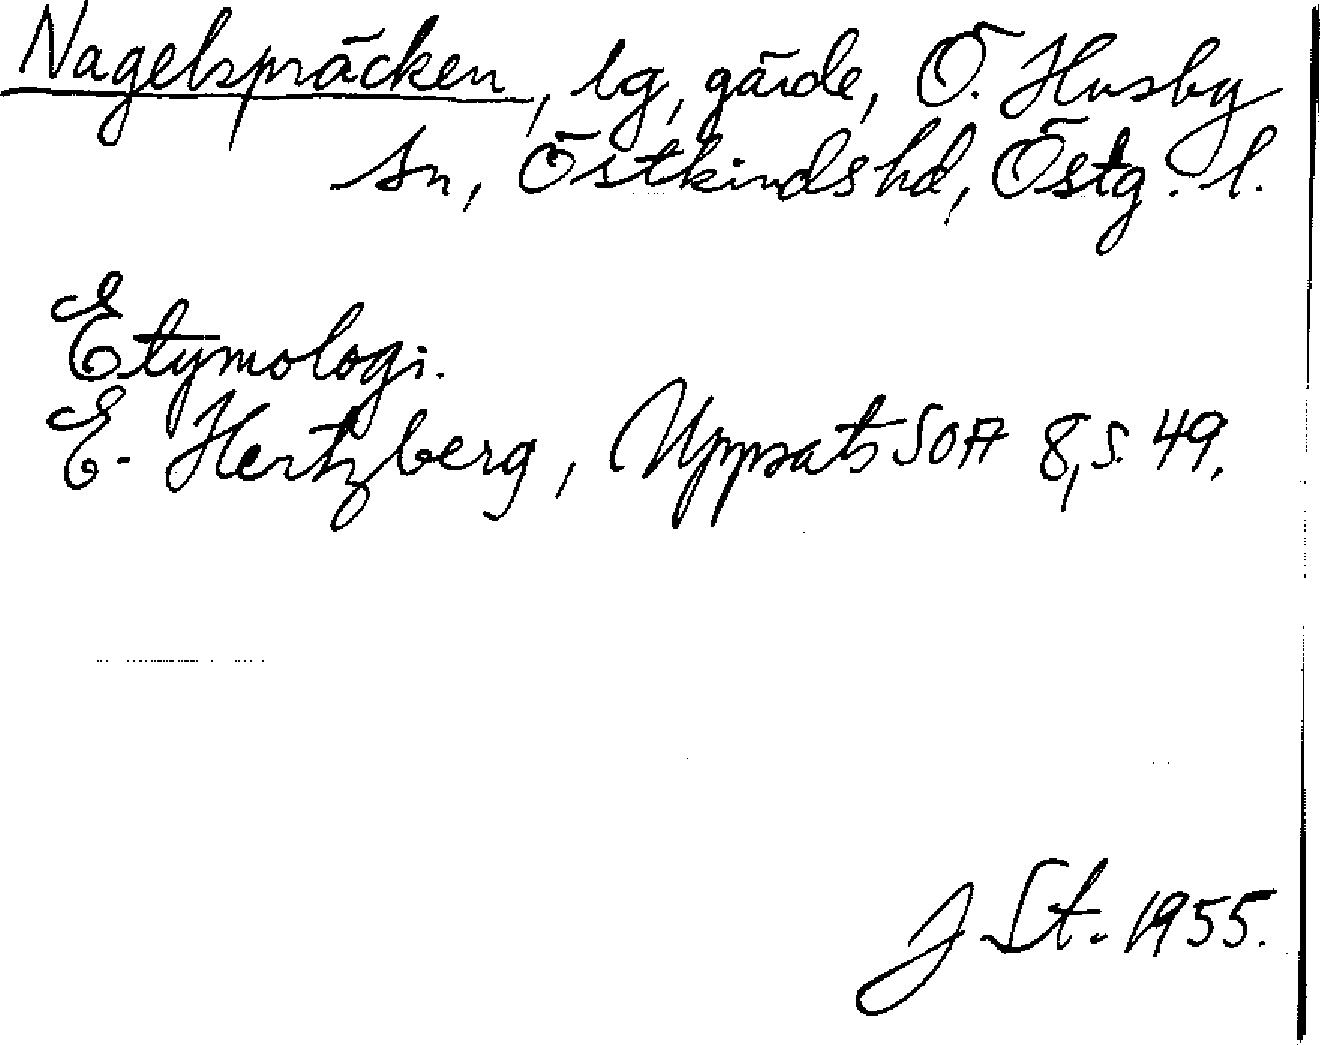 Nagelspräcken, lg, gärde, Ö. Husby
sn, Östkinds hd, Östg. l.
Etymologi.
E. Hertzberg, Uppsats SOA 8, s. 49.
J St. 1955.